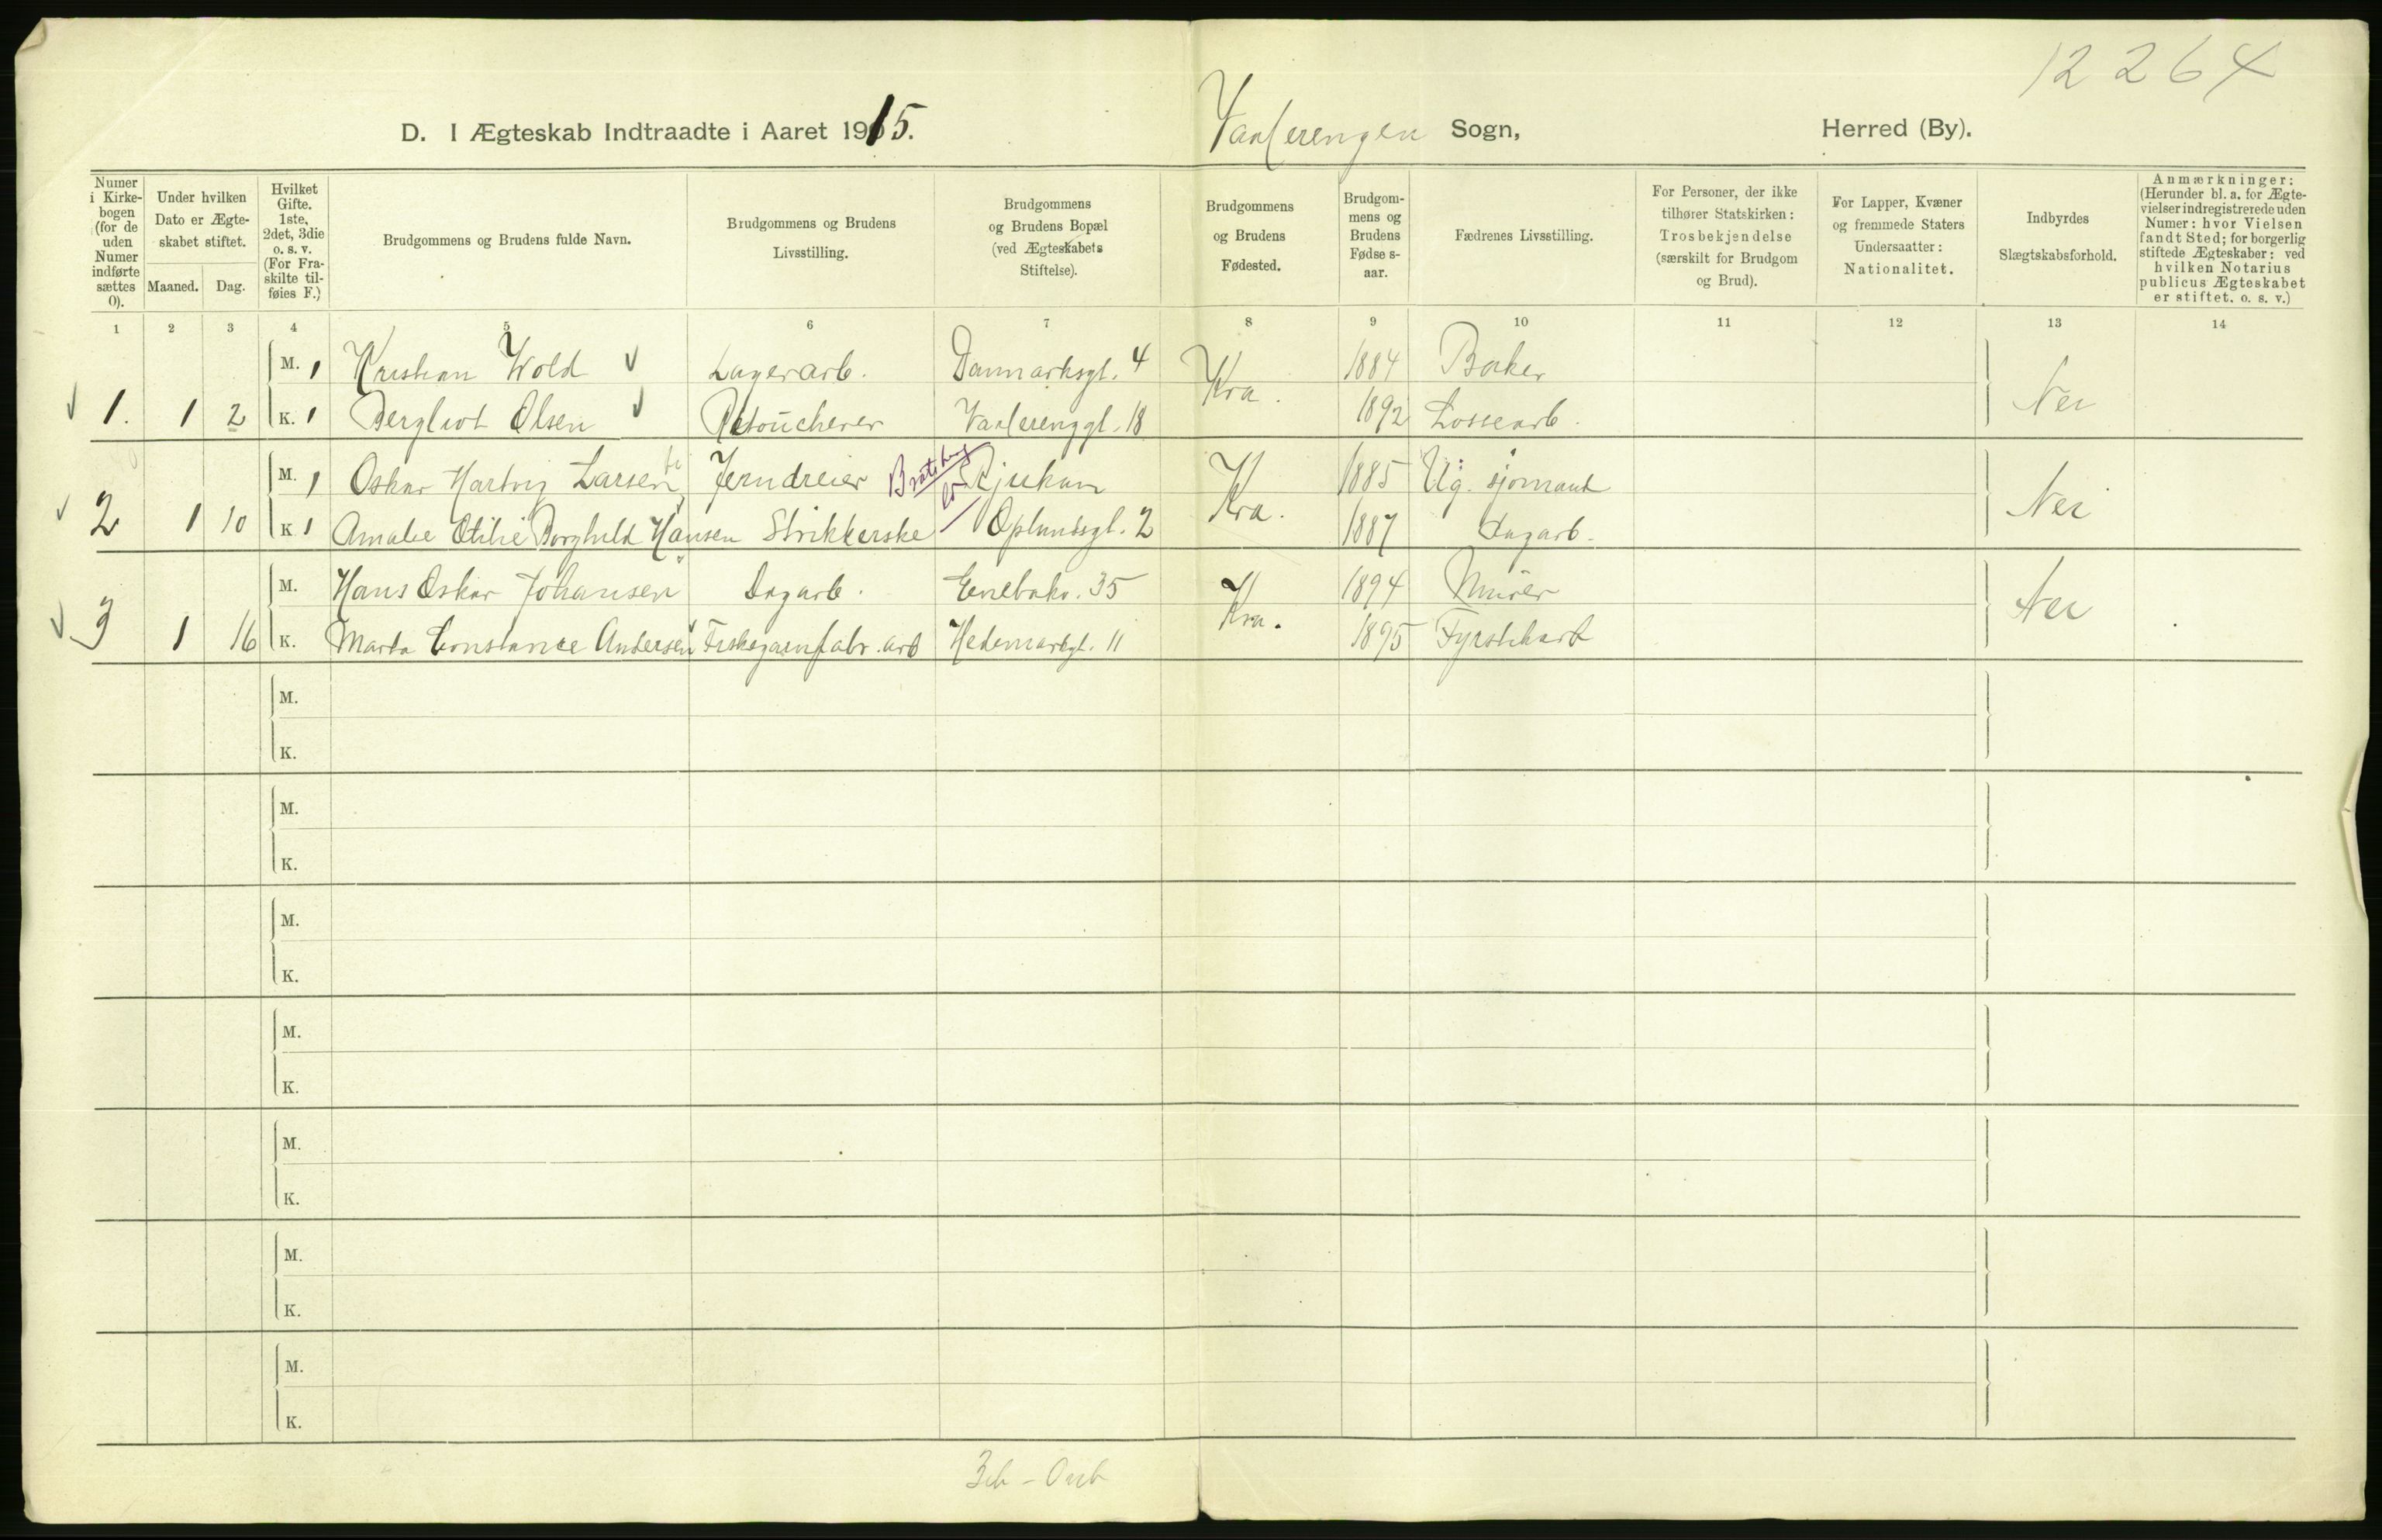 12264
D. I Ægteskab Indtraadte i Aaret 1915. Vaalerengen Sogn, Herred (By).
Numer i Kirkebogen (for de uden Numer indførte sættes 0).
Under hvilken Dato er Ægteskabet stiftet.
Maaned. Dag.
Hvilket Gifte. 1ste, 2det, 3die o. s. v. (For Fraskilte tilføies F.)
Brudgommens og Brudens fulde Navn.
Brudgommens og Brudens Livsstilling.
Brudgommens og Brudens Bopæl (ved Ægteskabets Stiftelse).
Brudgommens og Brudens Fødested.
Brudgommens og Brudens Fødselsaar.
Fædrenes Livsstilling.
For Personer, der ikke tilhører Statskirken: Trosbekjendelse (særskilt for Brudgom og Brud).
For Lapper, Kvæner og fremmede Staters Undersaatter: Nationalitet.
Indbyrdes Slægtskabsforhold.
Anmærkninger: (Herunder bl. a. for Ægtevielser indregistrerede uden Numer: hvor Vielsen fandt Sted; for borgerlig stiftede Ægteskaber: ved hvilken Notarius publicus Ægteskabet er stiftet. o. s. v.)
1 2 3 4 5 6 7 8 9 10 11 12 13 14
M. 1 Kristian Wold Lagerarb. Danmarksgt. 4 Kra. 1884 Baker Nei
1. 1 2 K. 1 Bergliot Olsen Retoucherer Vaalerenggt. 18 1892 Lossearb.
M. 1 Oskar Hartvig Larsen Jerndreier Bratsberg Rjukan Kra. 1885 Ug. sjømand Nei
2 1 10 K 1 Amalie Otilie Borghild Hansen Strikkerske Oplandsgt. 2 1887 Dagarb.
M. Hans Oskar Johansen Dagarb. Enebakv. 35 Kra. 1894 Murer Nei
3 1 16 K. Marta Constance Andersen Fiskegarnfabr. arb Hedemarkgt. 11 1895 Fyrstikarb
M.
K.
M.
K.
M.
K.
M.
K.
M.
K.
M.
K.
M.
K.